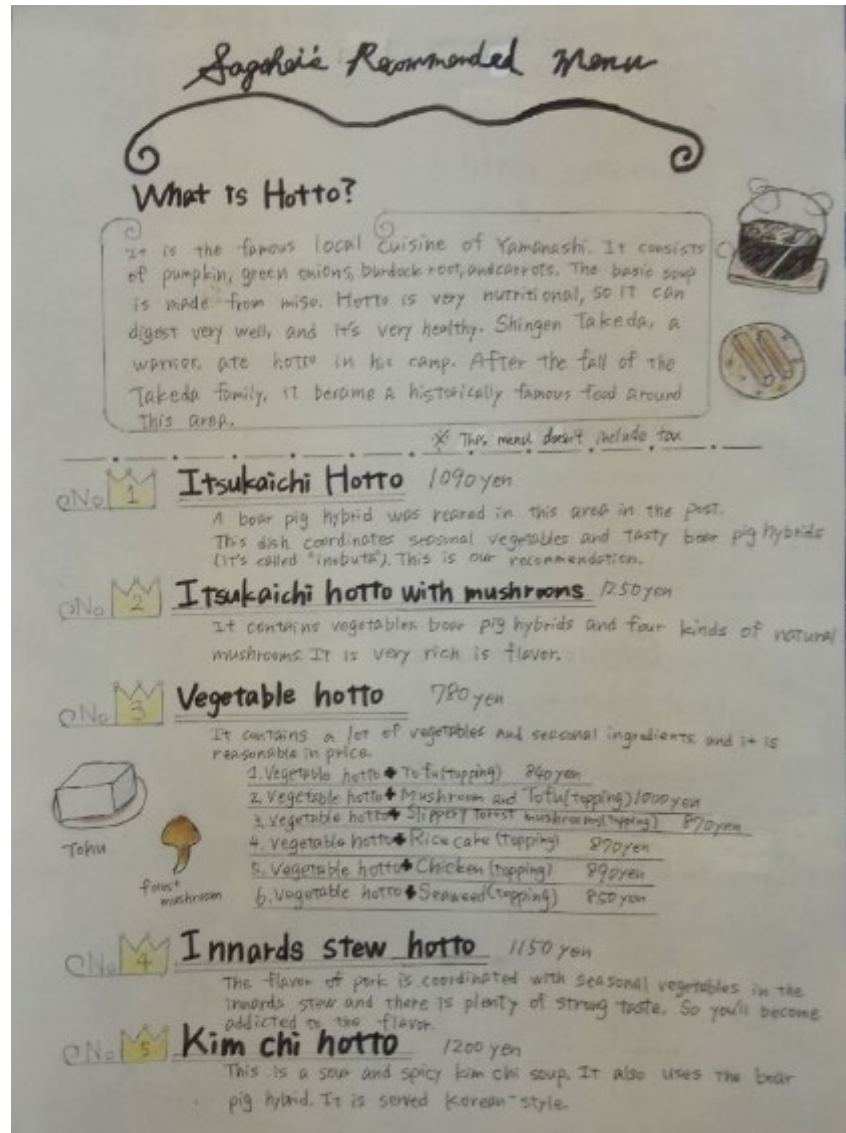 Sagohei's Recommended Menu
What is Hotto?
It is the famous local cuisine of Yamanashi. It consists
of pumpkin, green onions, burdock root, and carrots. The basic soup
is made from miso. Hotto is very nutritional, so it can
digest very well, and it's very healthy. Shingen Takeda, a
warrior, ate hotto in his camp. After the fall of the
Takeda family, it became a historically famous food around
this area.
※ This menu doesn't include tax
No. 1 Itsukaichi Hotto 1090 yen
A boar pig hybrid was reared in this area in the past.
This dish coordinates seasonal vegetables and tasty boar pig hybrids
(it's called "inobuta"). This is our recommendation.
No. 2 Itsukaichi hotto with mushrooms 1250 yen
It contains vegetables boar pig hybrids and four kinds of natural
mushrooms. It is very rich is flavor.
No. 3 Vegetable hotto 780 yen
It contains a lot of vegetables and seasonal ingredients and it is
reasonable in price.
1. Vegetable hotto + Tofu (topping) 840 yen
2. Vegetable hotto + Mushroom and Tofu (topping) 1000 yen
3. Vegetable hotto + Slippery forest mushrooms (topping) 870 yen
4. Vegetable hotto + Rice cake (topping) 870 yen
5. Vegetable hotto + Chicken (topping) 890 yen
6. Vegetable hotto + Seaweed (topping) 850 yen
Tohu
forest
mushroom
No. 4 Innards stew hotto 1150 yen
The flavor of pork is coordinated with seasonal vegetables in the
innards stew and there is plenty of strong taste. So you'll become
addicted to the flavor.
No. 5 Kim chi hotto 1200 yen
This is a sour and spicy kim chi soup. It also uses the boar
pig hybrid. It is served Korean-style.